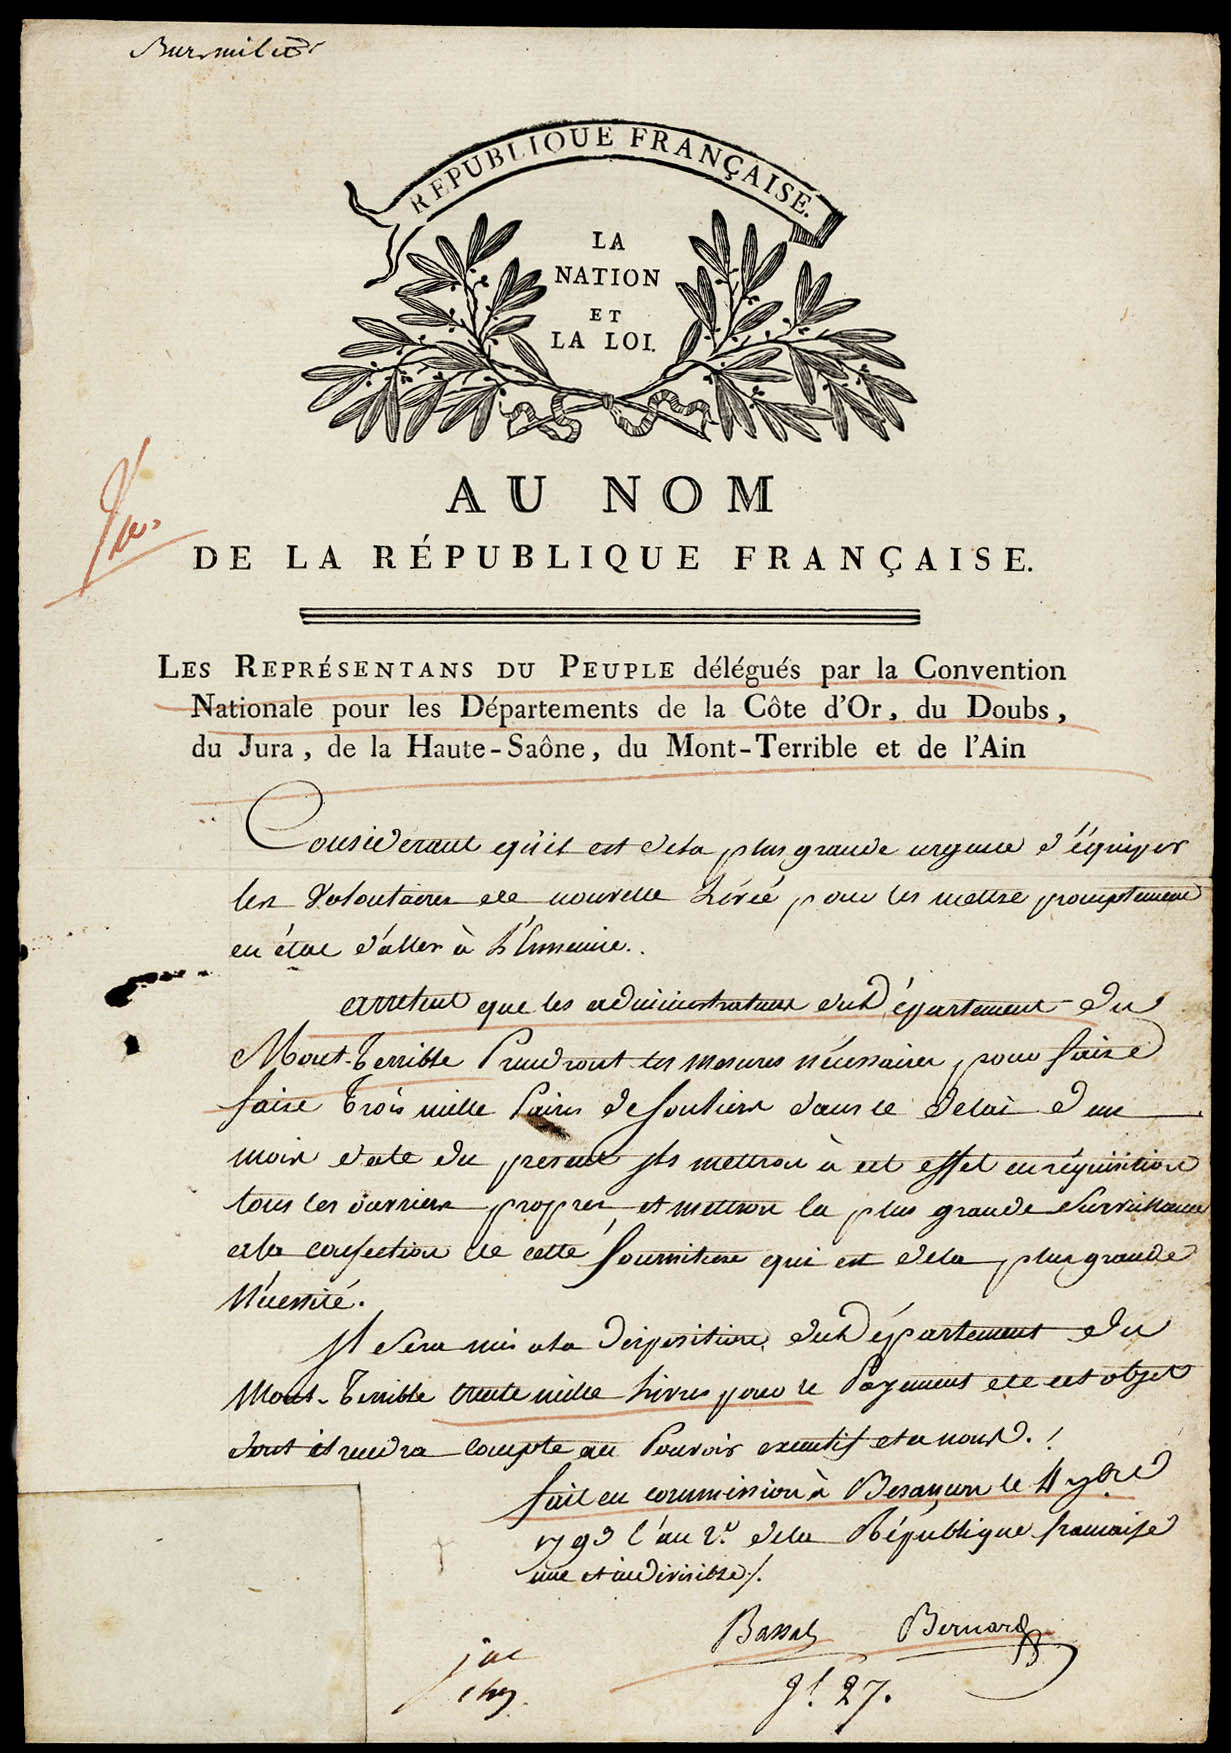 Bur. milit.
RÉPUBLIQUE FRANÇAISE.
LA
NATION
ET
LA LOI.
AU NOM
DE LA RÉPUBLIQUE FRANÇAISE.
LES REPRÉSENTANS DU PEUPLE délégués par la Convention
Nationale pour les Départements de la Côte d'Or, du Doubs,
du Jura, de la Haute-Saône, du Mont-Terrible et de l'Ain
Considerant qu'il est dela plus grande urgence d'équiper
les Volontaires de nouvelle Lévée pour les mettre promptement
en état d'aller à L'Ennemie.
arretent que les administrateurs du Département du
Mont-Terrible Prendront les mesures nécessaires pour faire
faire Trois mille Paires de Souliers dans le delai d'un
mois date du present ils mettron à cet effet en réquisition
tous les ouvriers propres et mettron la plus grande Surveillance
ala confection de cette fourniture qui est dela plus grande
Nécessité.
Il Sera mis ala Disposition du Département du
Mont-Terrible trente mille Livres pour le Payement de cet objet
dont il rendra compte au Pouvoir executif et a nous.
fait en commission à Besançon le 4 7bre
1793 l'an 2.e dela République francaise
une et indivisible.
Bassal Bernard
27.